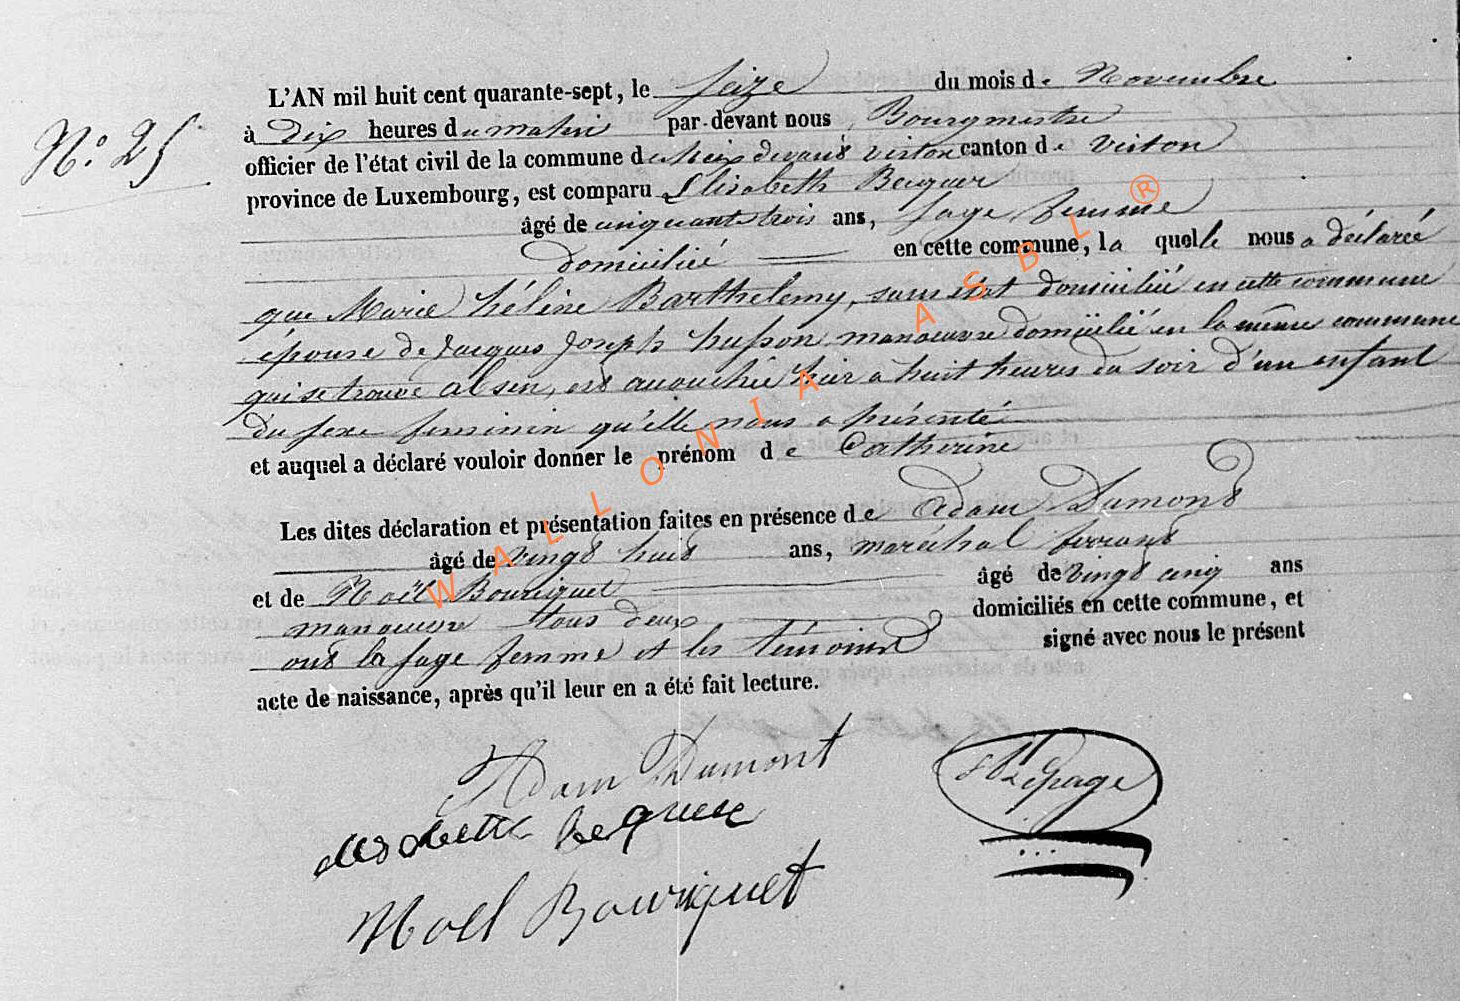 L'AN mil huit cent quarante-sept, le seize du mois de Novembre
N.° 25
à dix heures du matin par-devant nous Bourgmestre
officier de l'état civil de la commune de Meix devant virton canton de virton
province de Luxembourg, est comparu Elisabeth Bequer
âgé de cinquante trois ans, sage femme
domiciliée en cette commune, la quelle nous a déclaré
que Marie hélène Barthelemy, sans état domiciliée en cette commune
épouse de Jacques Joseph husson manoeuvre domicilié en la même commune
qui se trouve absen, est accouchée hier à huit heures du soir d'un enfant
du sexe feminin qu'elle nous a présenté
et auquel a déclaré vouloir donner le prénom de Catherine
Les dites déclaration et présentation faites en présence de Adam Dumont
âgé de vingt huit ans, maréchal ferrant
et de Noël Bouriquet âgé de vingt cinq ans
manoeuvre tous deux domiciliés en cette commune, et
ont la sage femme et les témoins signé avec nous le présent
acte de naissance, après qu'il leur en a été fait lecture.
Adam Dumont
Lepage
Noel Bouriquet
WALLONIA ASBL ®